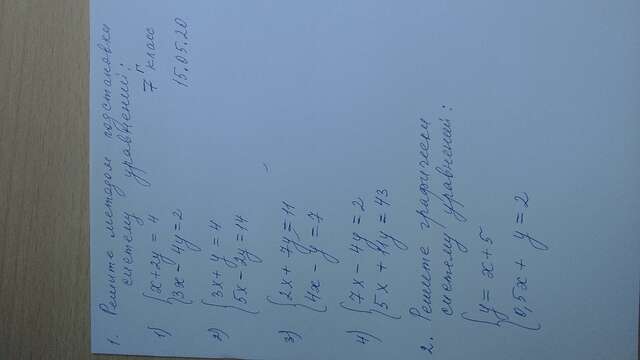 1. Решите методом подстановки
систему уравнений:
7 г класс
15.05.20
1) { x + 2y = 4
3x - 4y = 2
2) { 3x + y = 4
5x - 2y = 14
3) { 2x + 7y = 11
4x - y = 7
4) { 7x - 4y = 2
5x + 11y = 43
2. Решите графически
систему уравнений:
{ y = x + 5
0,5x + y = 2